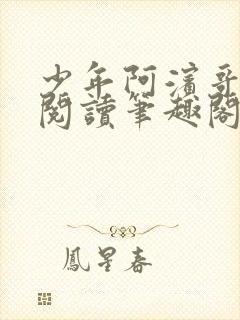 少年阿濱哥
閱讀筆趣閣
鳳星春